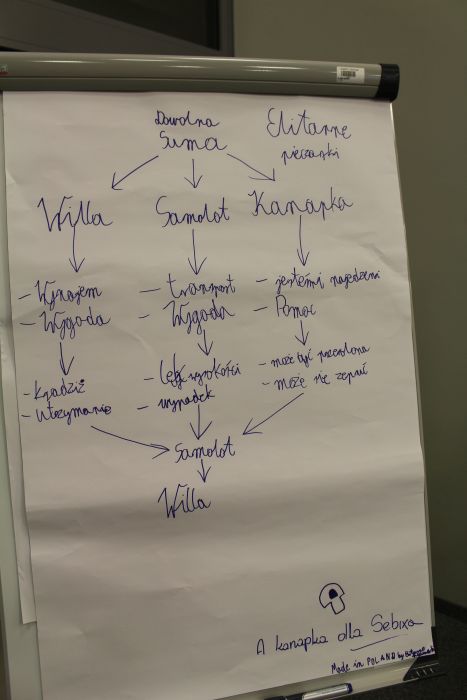 Dowolna
Suma
Elitarne
pieczarki
Willa
Samolot
Kanapka
- Wynajem
- Wygoda
- transport
- Wygoda
- jesteśmy najedzeni
- Pomoc
- Kradzież
- utrzymanie
- lęk wysokości
- wypadek
- może być przesolona
- może się zepsuć
Samolot
Willa
A kanapka dla Sebixa
Made in POLAND by